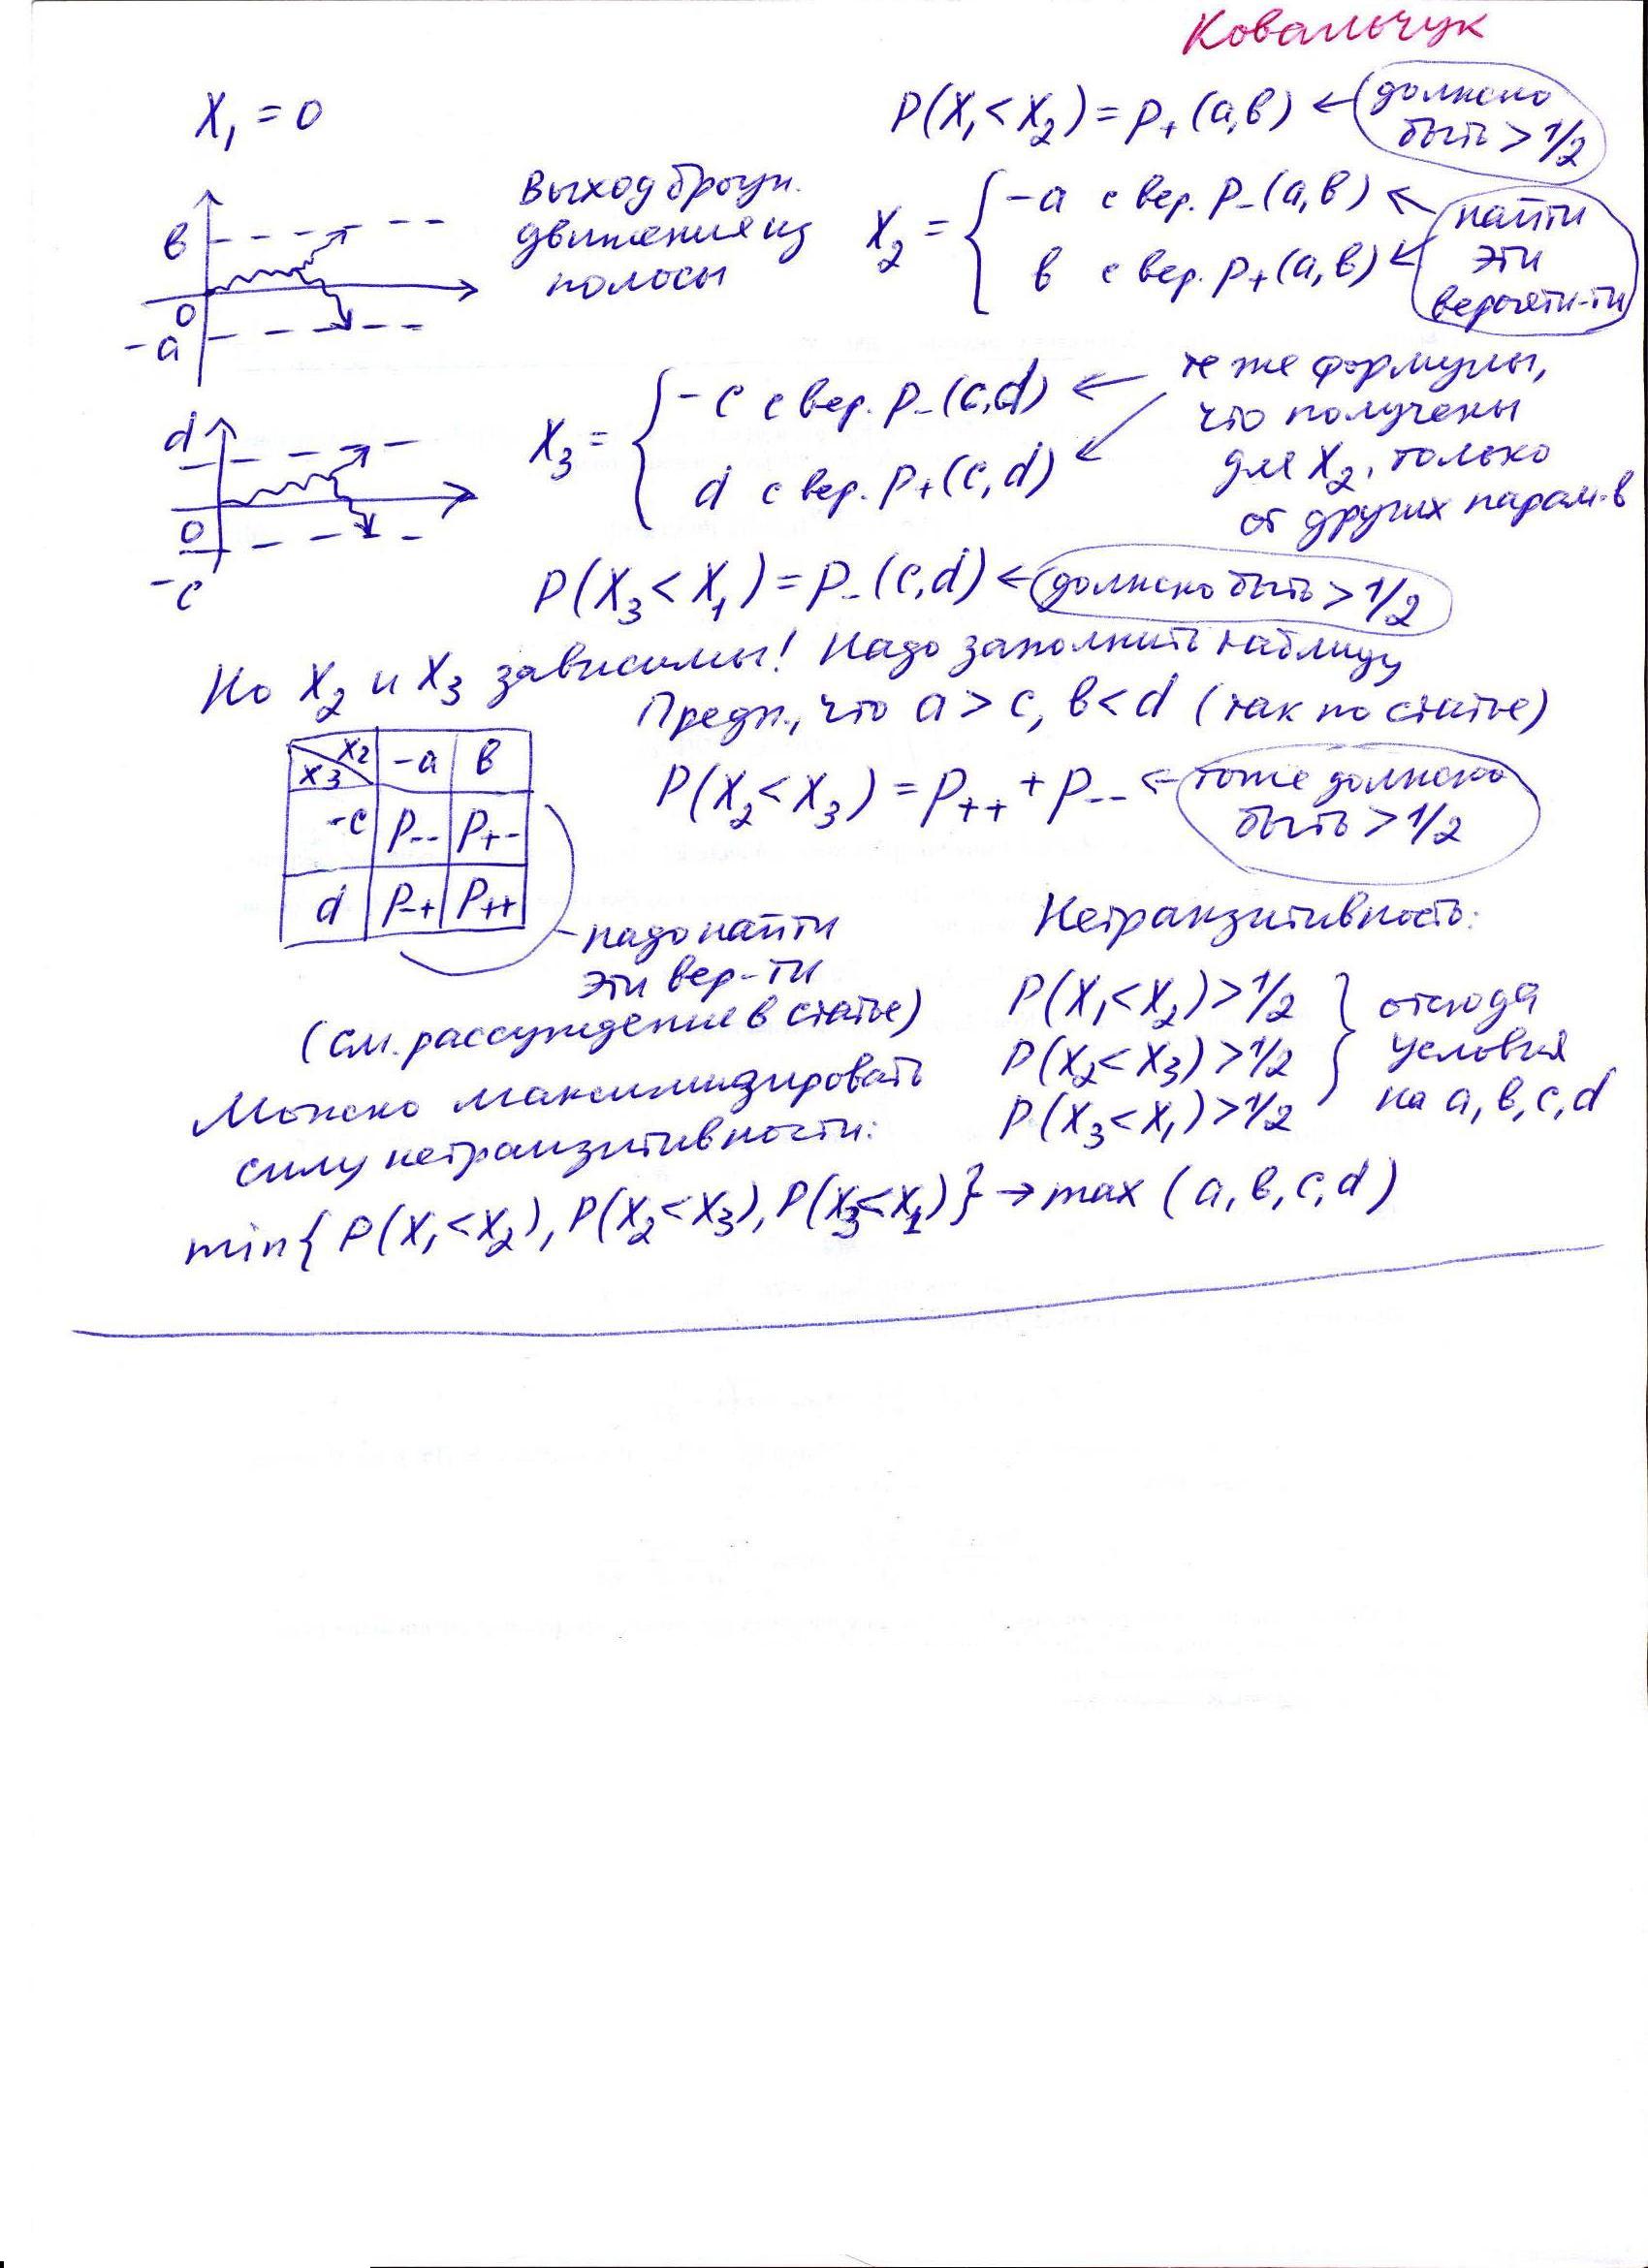 Ковальчук
X₁ = 0
P(X₁ < X₂) = p₊(a,b) ← должно быть > 1/2
b
0
-a
Выход броун.
движения из
полосы
X₂ = { -a с вер. p₋(a,b) ←
b с вер. p₊(a,b) ←
найти
эти
вероятн-ти
d
0
-c
X₃ = { -c с вер. p₋(c,d) ←
d с вер. p₊(c,d) ←
те же формулы,
что получены
для X₂, только
от других парам-в
P(X₃ < X₁) = p₋(c,d) ← должно быть > 1/2
Но X₂ и X₃ зависимы! Надо заполнить таблицу
Предп., что a > c, b < d (так по статье)
X₂ -a b
X₃
-c P₋₋ P₊₋
d P₋₊ P₊₊
P(X₂ < X₃) = P₊₊ + P₋₋ ← тоже должно
быть > 1/2
надо найти
эти вер-ти
(см. рассуждение в статье)
Нетранзитивность:
P(X₁ < X₂) > 1/2
P(X₂ < X₃) > 1/2
P(X₃ < X₁) > 1/2
} отсюда
условия
на a, b, c, d
Можно максимизировать
силу нетранзитивности:
min{ P(X₁ < X₂), P(X₂ < X₃), P(X₃ < X₁)} → max (a, b, c, d)